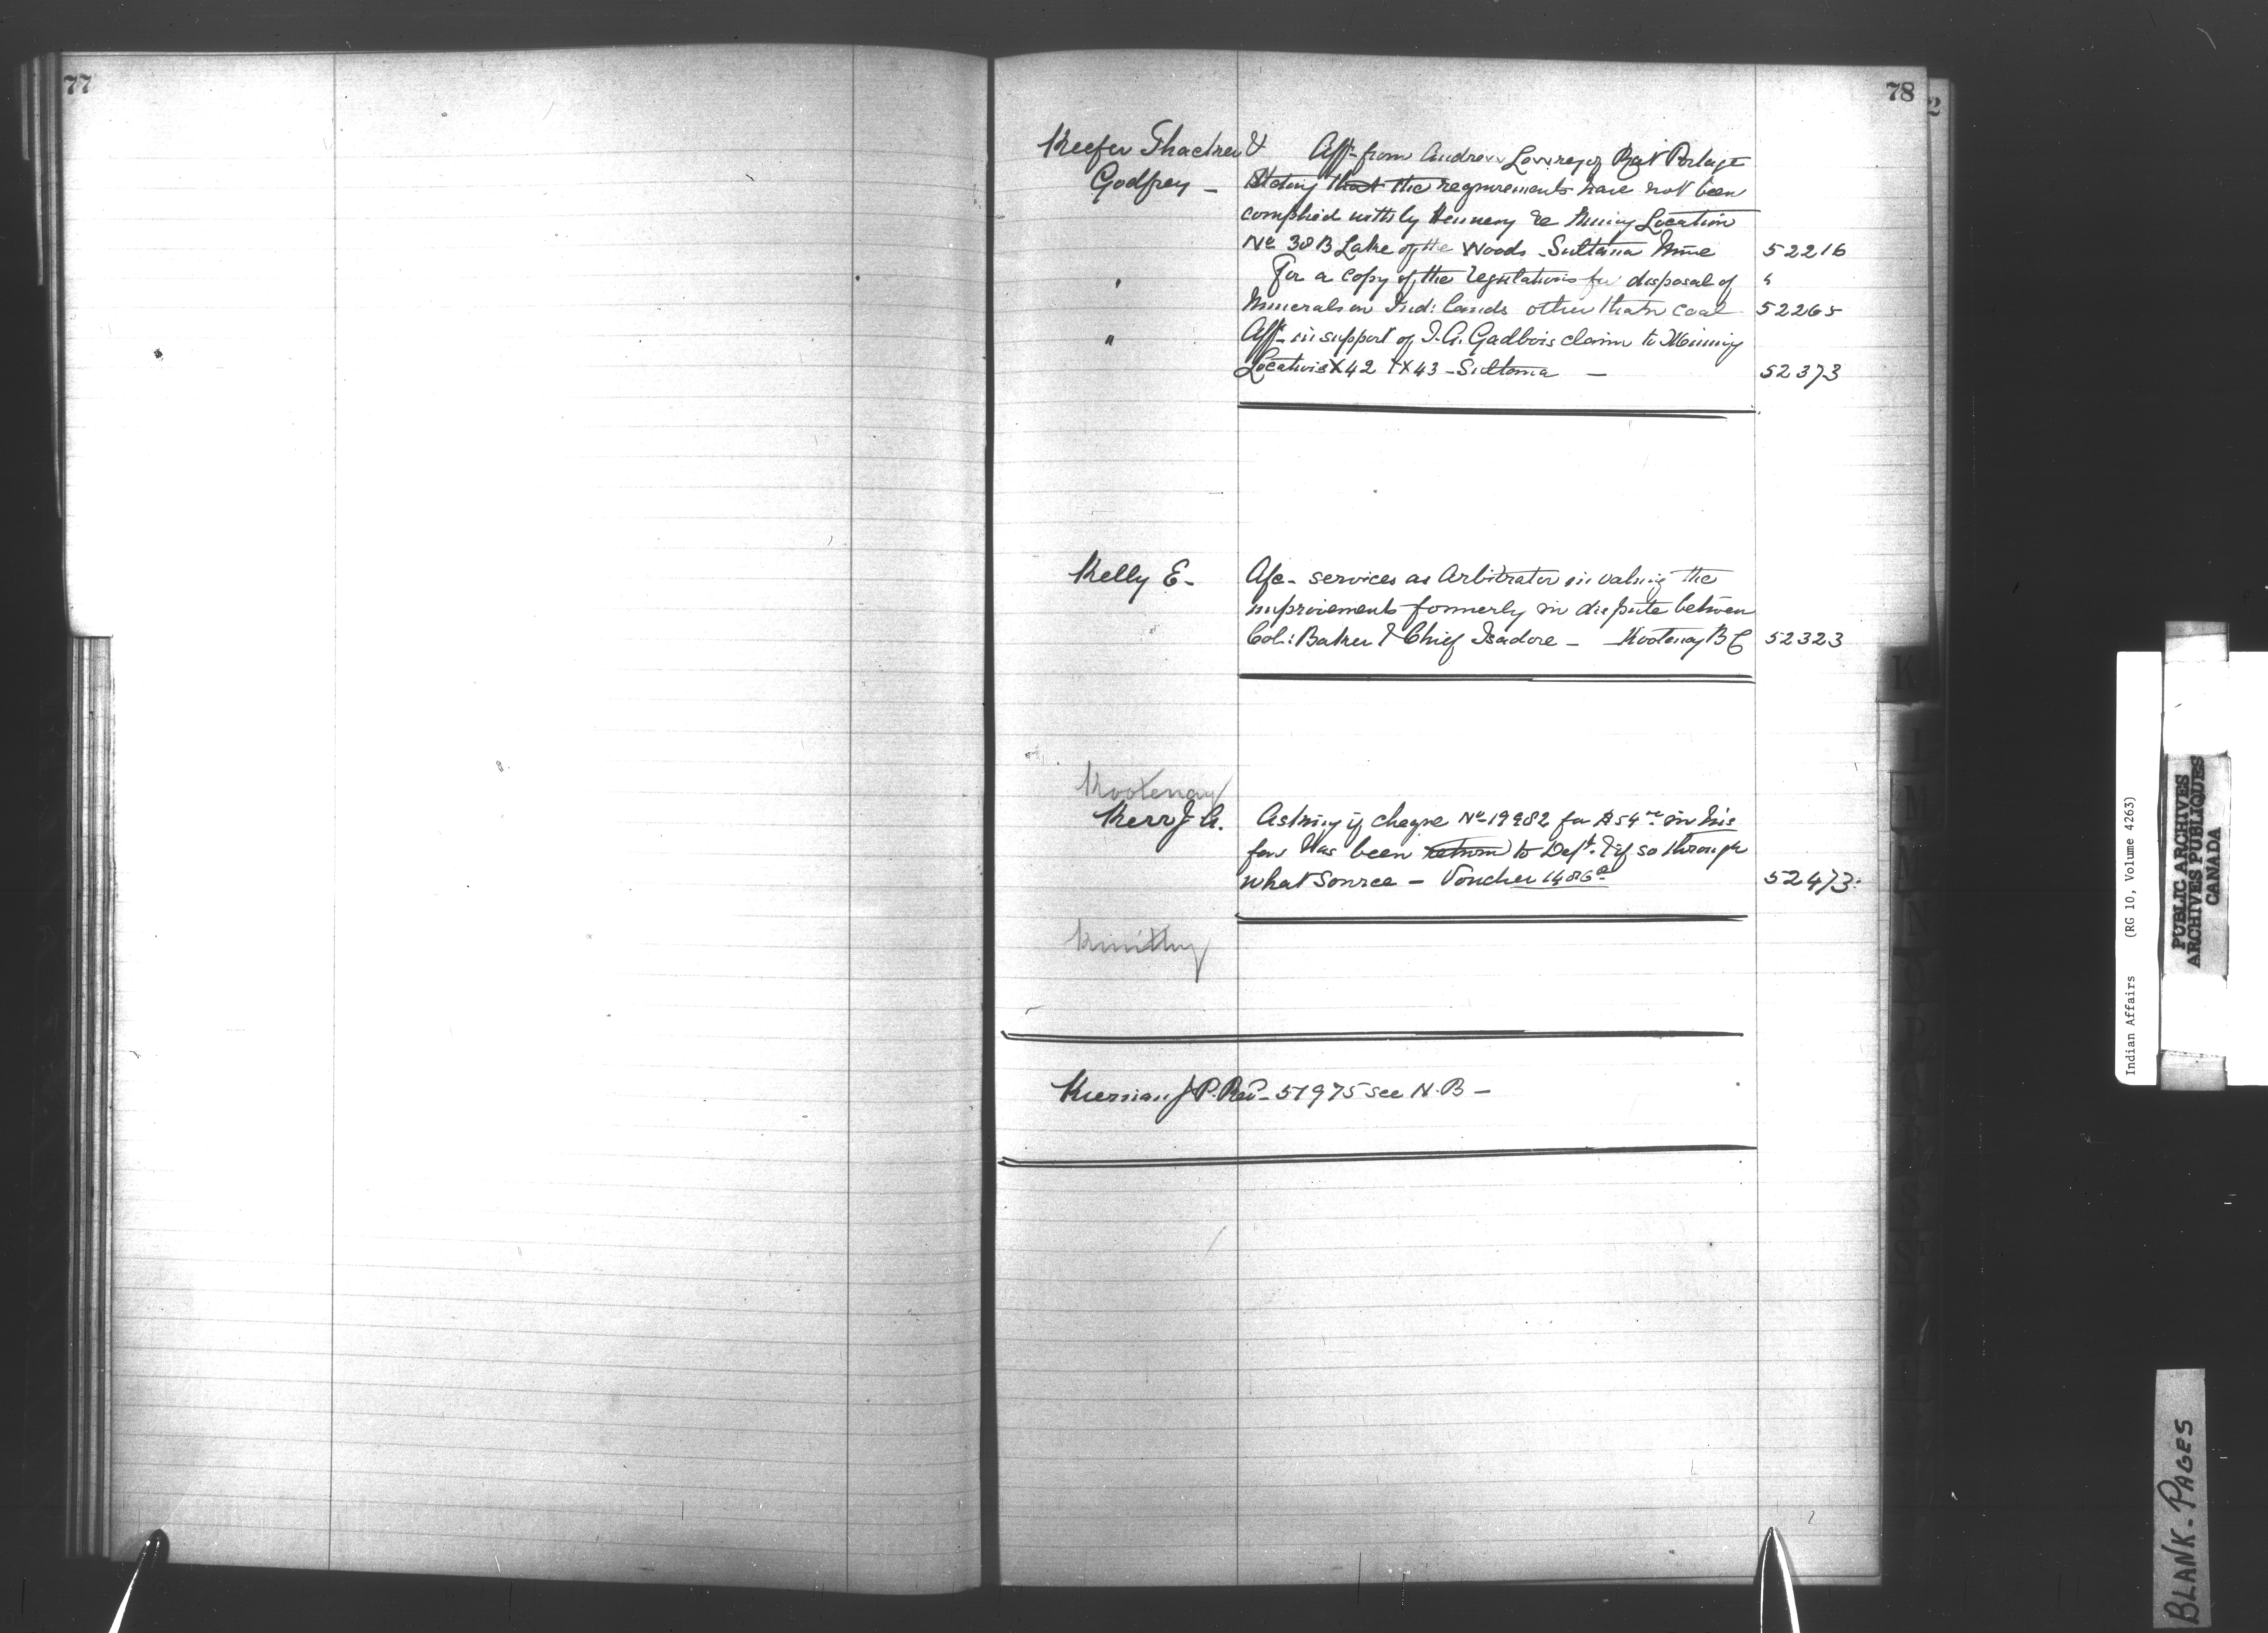 77
78
2
Keefer Thacker & Afft from Andrew Lowrey of Rat Portage
Godfrey - Stating that the requirements have not been
complied with by Hennery &c Mining Location
No 38B Lake of the Woods - Sultana Mine 52216
" For a copy of the regulations for disposal of "
Minerals on Ind: lands other than coal 52265
" Afft in support of J. A. Gadbois claim to Mining
Locations X42 & X43 - Sultana - 52373
Kelly E - A/c - services as Arbitrator in valuing the
improvements formerly in dispute between
Col: Baker & Chief Isadore - Kootenay B C 52323
Kootenay
Kerr J A. Asking if cheque No 19982 for $54 in his
fav has been return to Dept. & if so through
what source - Voucher 52473
Kiernan J P. Rev - 51975 see N. B -
K
L
M
N
O
P
R
S
Indian Affairs (RG 10, Volume 4263)
PUBLIC ARCHIVES
ARCHIVES PUBLIQUES
CANADA
BLANK - PAGES